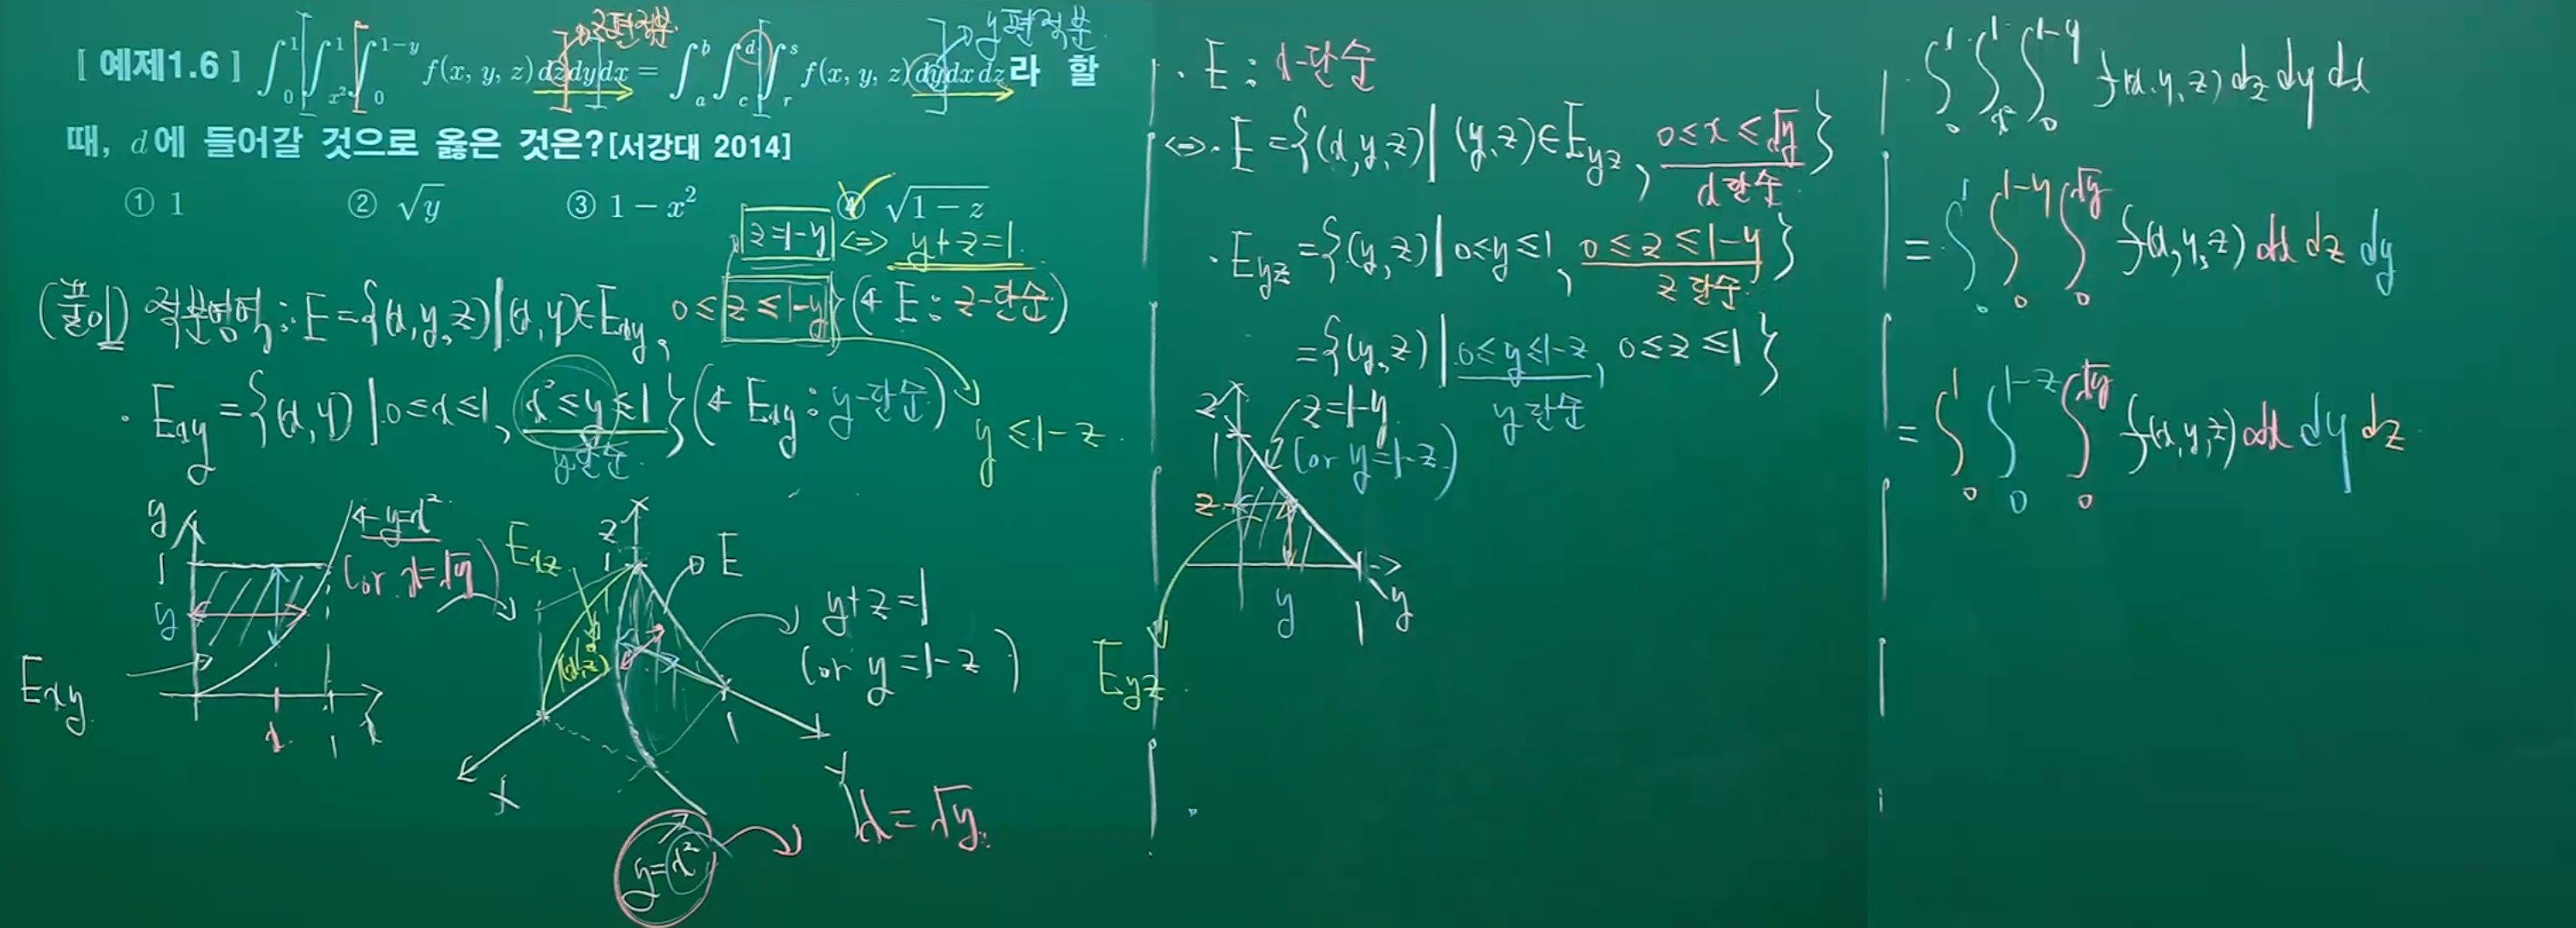 [예제1.6] ∫₀¹ ∫_{x²}^1 ∫₀^{1-y} f(x, y, z) dz dy dx = ∫_a^b ∫_c^d ∫_r^s f(x, y, z) dy dx dz 라 할
z편적분
y편적분
때, d에 들어갈 것으로 옳은 것은?[서강대 2014]
① 1 ② √y ③ 1 − x² ④ √(1 − z)
z=1-y <=> y+z=1
(풀이) 적분영역: E={(x,y,z)|(x,y)∈Exy, 0≤z≤1-y} (← E: z-단순)
· Exy={(x,y)|0≤x≤1, x²≤y≤1} (← Exy: y-단순)
y 단순
y≤1-z
y
1
y
← y=x²
(or x=√y)
Exy
x
1
x
Exz
z
1
E
(x,z)
y+z=1
(or y=1-z)
1
X
y
y=x²
x=√y
· E: x-단순
<=> · E={(x,y,z)|(y,z)∈Eyz, 0≤x≤√y}
x 단순
· Eyz={(y,z)|0≤y≤1, 0≤z≤1-y}
z 단순
={(y,z)|0≤y≤1-z, 0≤z≤1}
y 단순
z
1
z=1-y
(or y=1-z)
z
y
1
y
Eyz
· ∫₀¹ ∫_{x²}^1 ∫₀^{1-y} f(x,y,z) dz dy dx
= ∫₀¹ ∫₀^{1-y} ∫₀^{√y} f(x,y,z) dx dz dy
= ∫₀¹ ∫₀^{1-z} ∫₀^{√y} f(x,y,z) dx dy dz